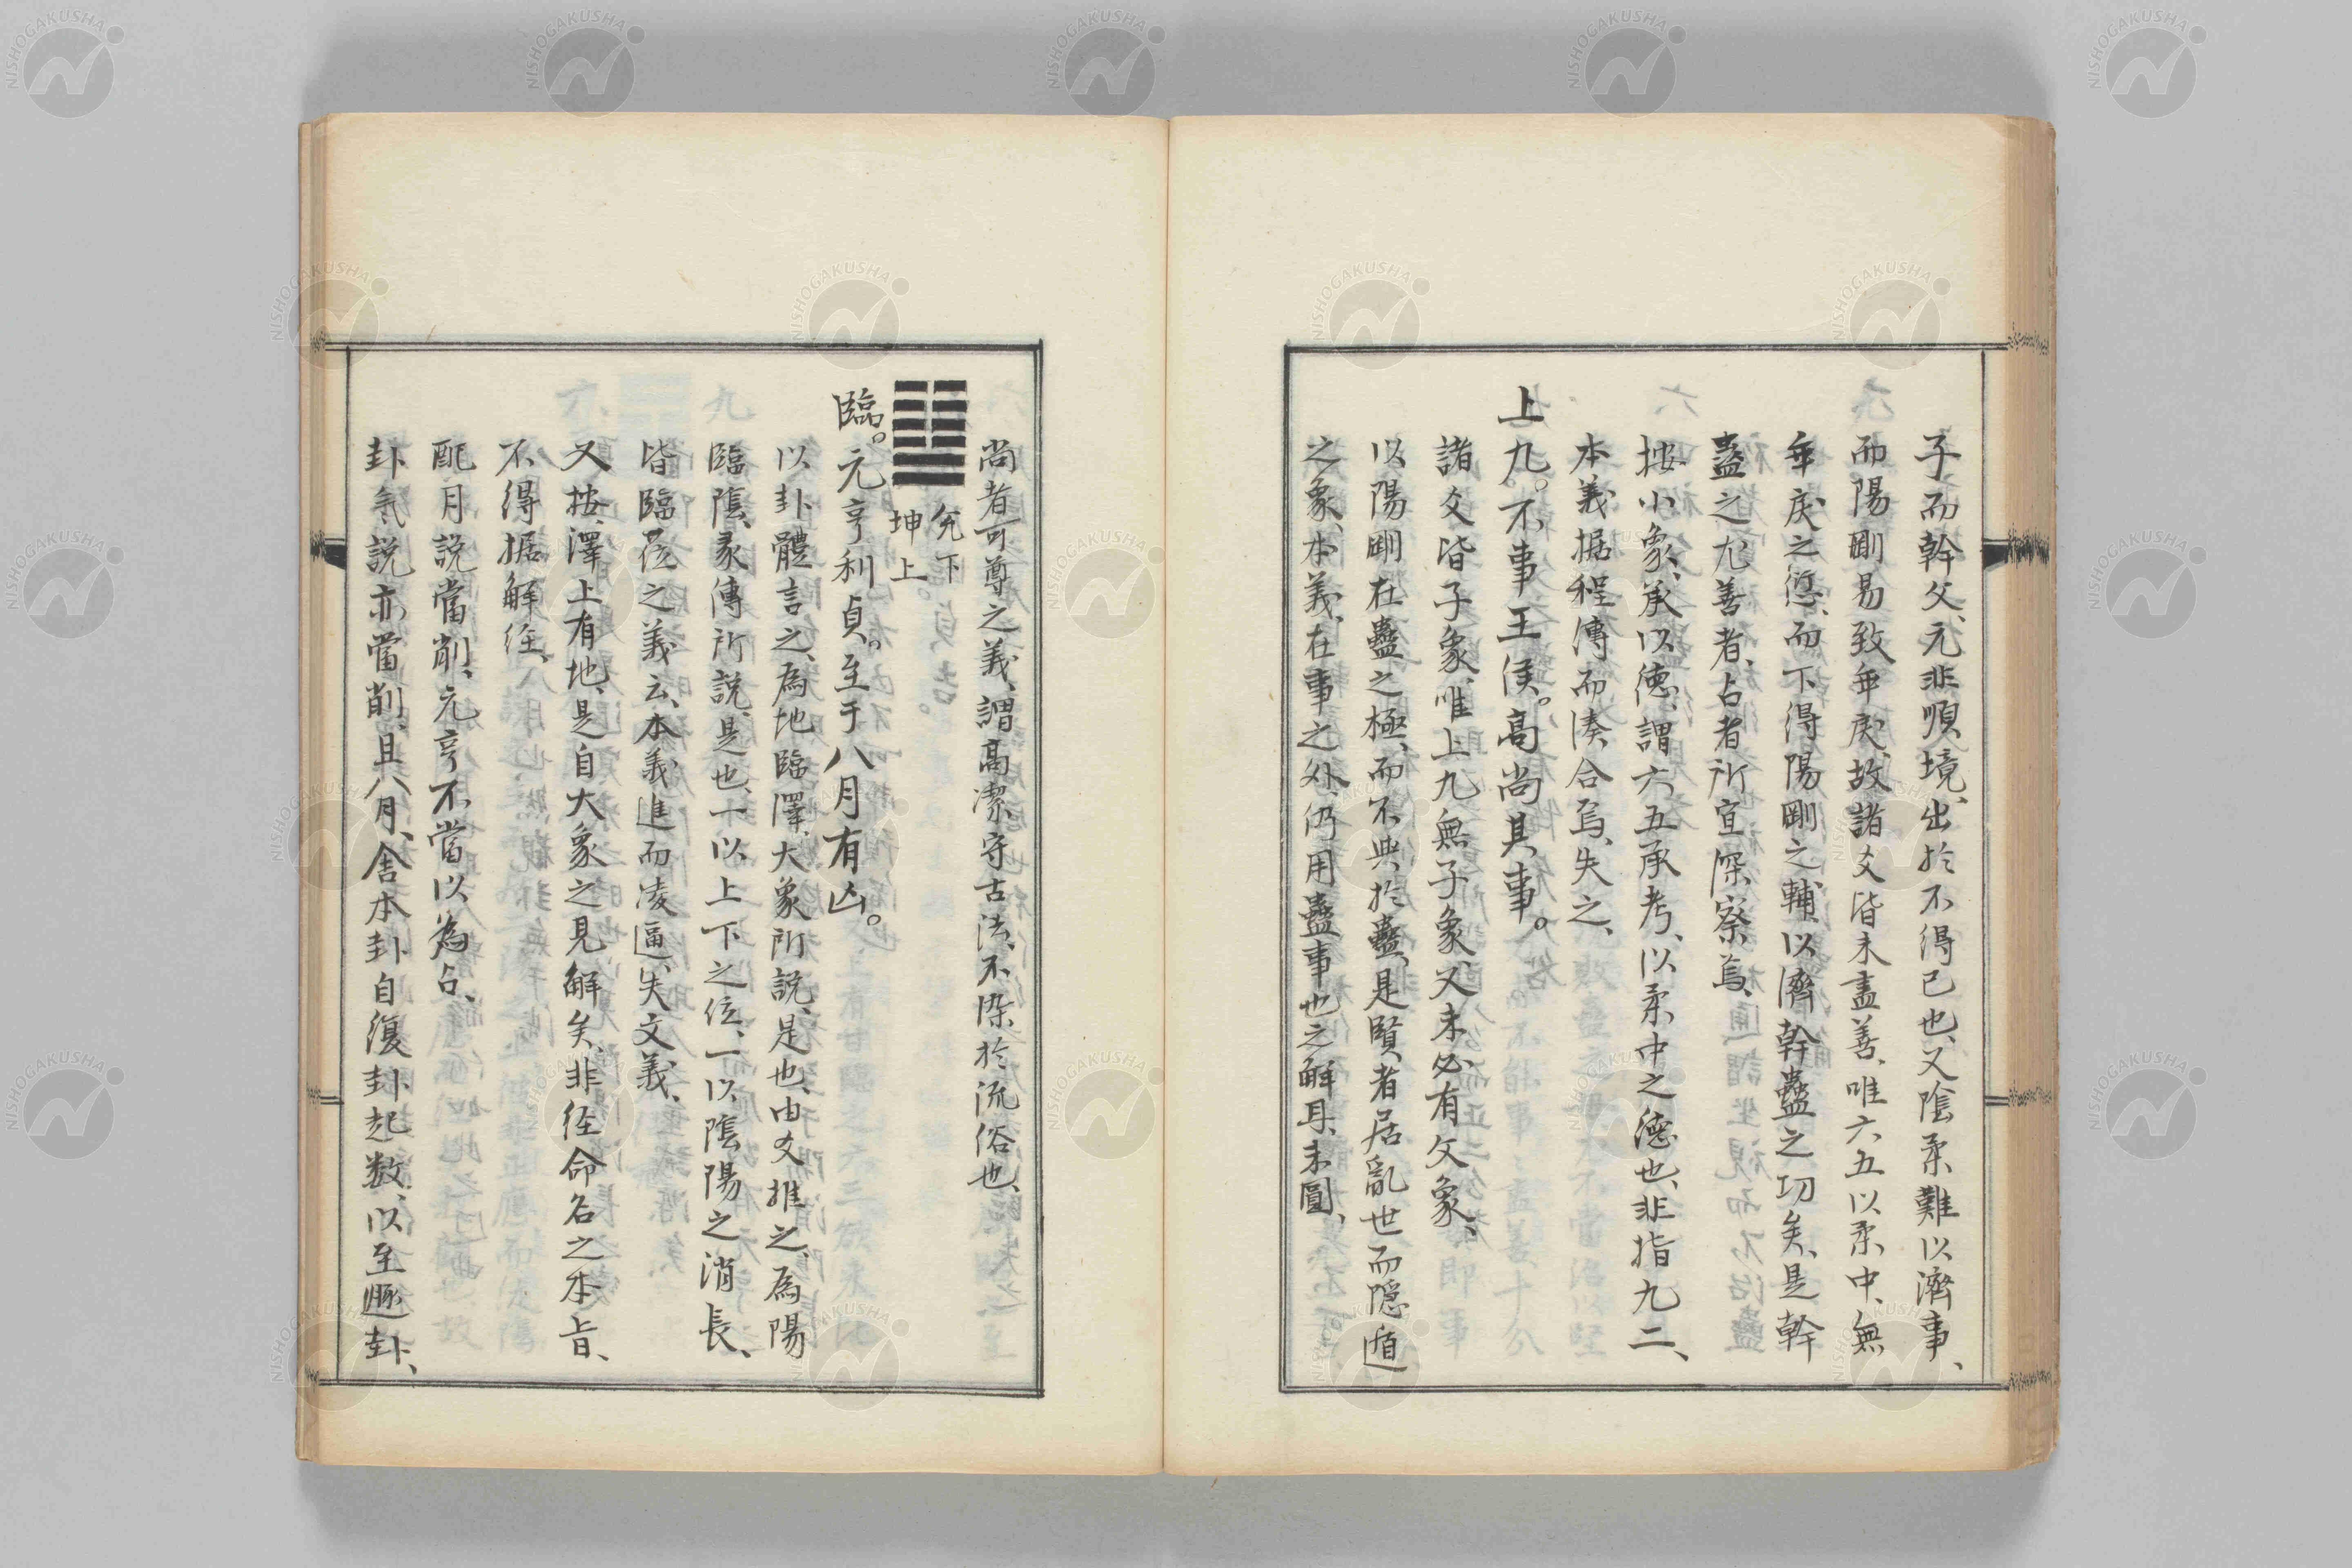 子而幹父、元非順境、出於不得已也、又陰柔難以濟事、
而陽剛易致乖戾、故諸爻皆未盡善、唯六五以柔中、無
乖戾之愆、而下得陽剛之輔、以濟幹蠱之功矣、是幹
蠱之尤善者、占者所宜深察焉、
按小象、承以德、謂六五承考、以柔中之德也、非指九二、
本義据程傳而湊合焉、失之、
上九。不事王侯。高尚其事。
諸爻皆子象、唯上九無子象、又未必有父象、
以陽剛在蠱之極、而不與於蠱、是賢者居亂世而隱遁
之象、本義、在事之外、仍用蠱事也之解耳、未圓、
尚者可尊之義、謂高潔守古法、不染於流俗也、
兌下
坤上
臨。元亨利貞。至于八月有凶。
以卦體言之、為地臨澤、大象所說、是也、由爻推之、為陽
臨陰、彖傳所說、是也、一以上下之位、一以陰陽之消長、
皆臨莅之義云、本義進而凌逼、失文義、
又按、澤上有地、是自大象之見解矣、非經命名之本旨、
不得据解經、
配月說當削、元亨不當以為占、
卦氣說亦當削、且八月、舍本卦自復卦起数、以至遯卦、
NISHOGAKUSHA